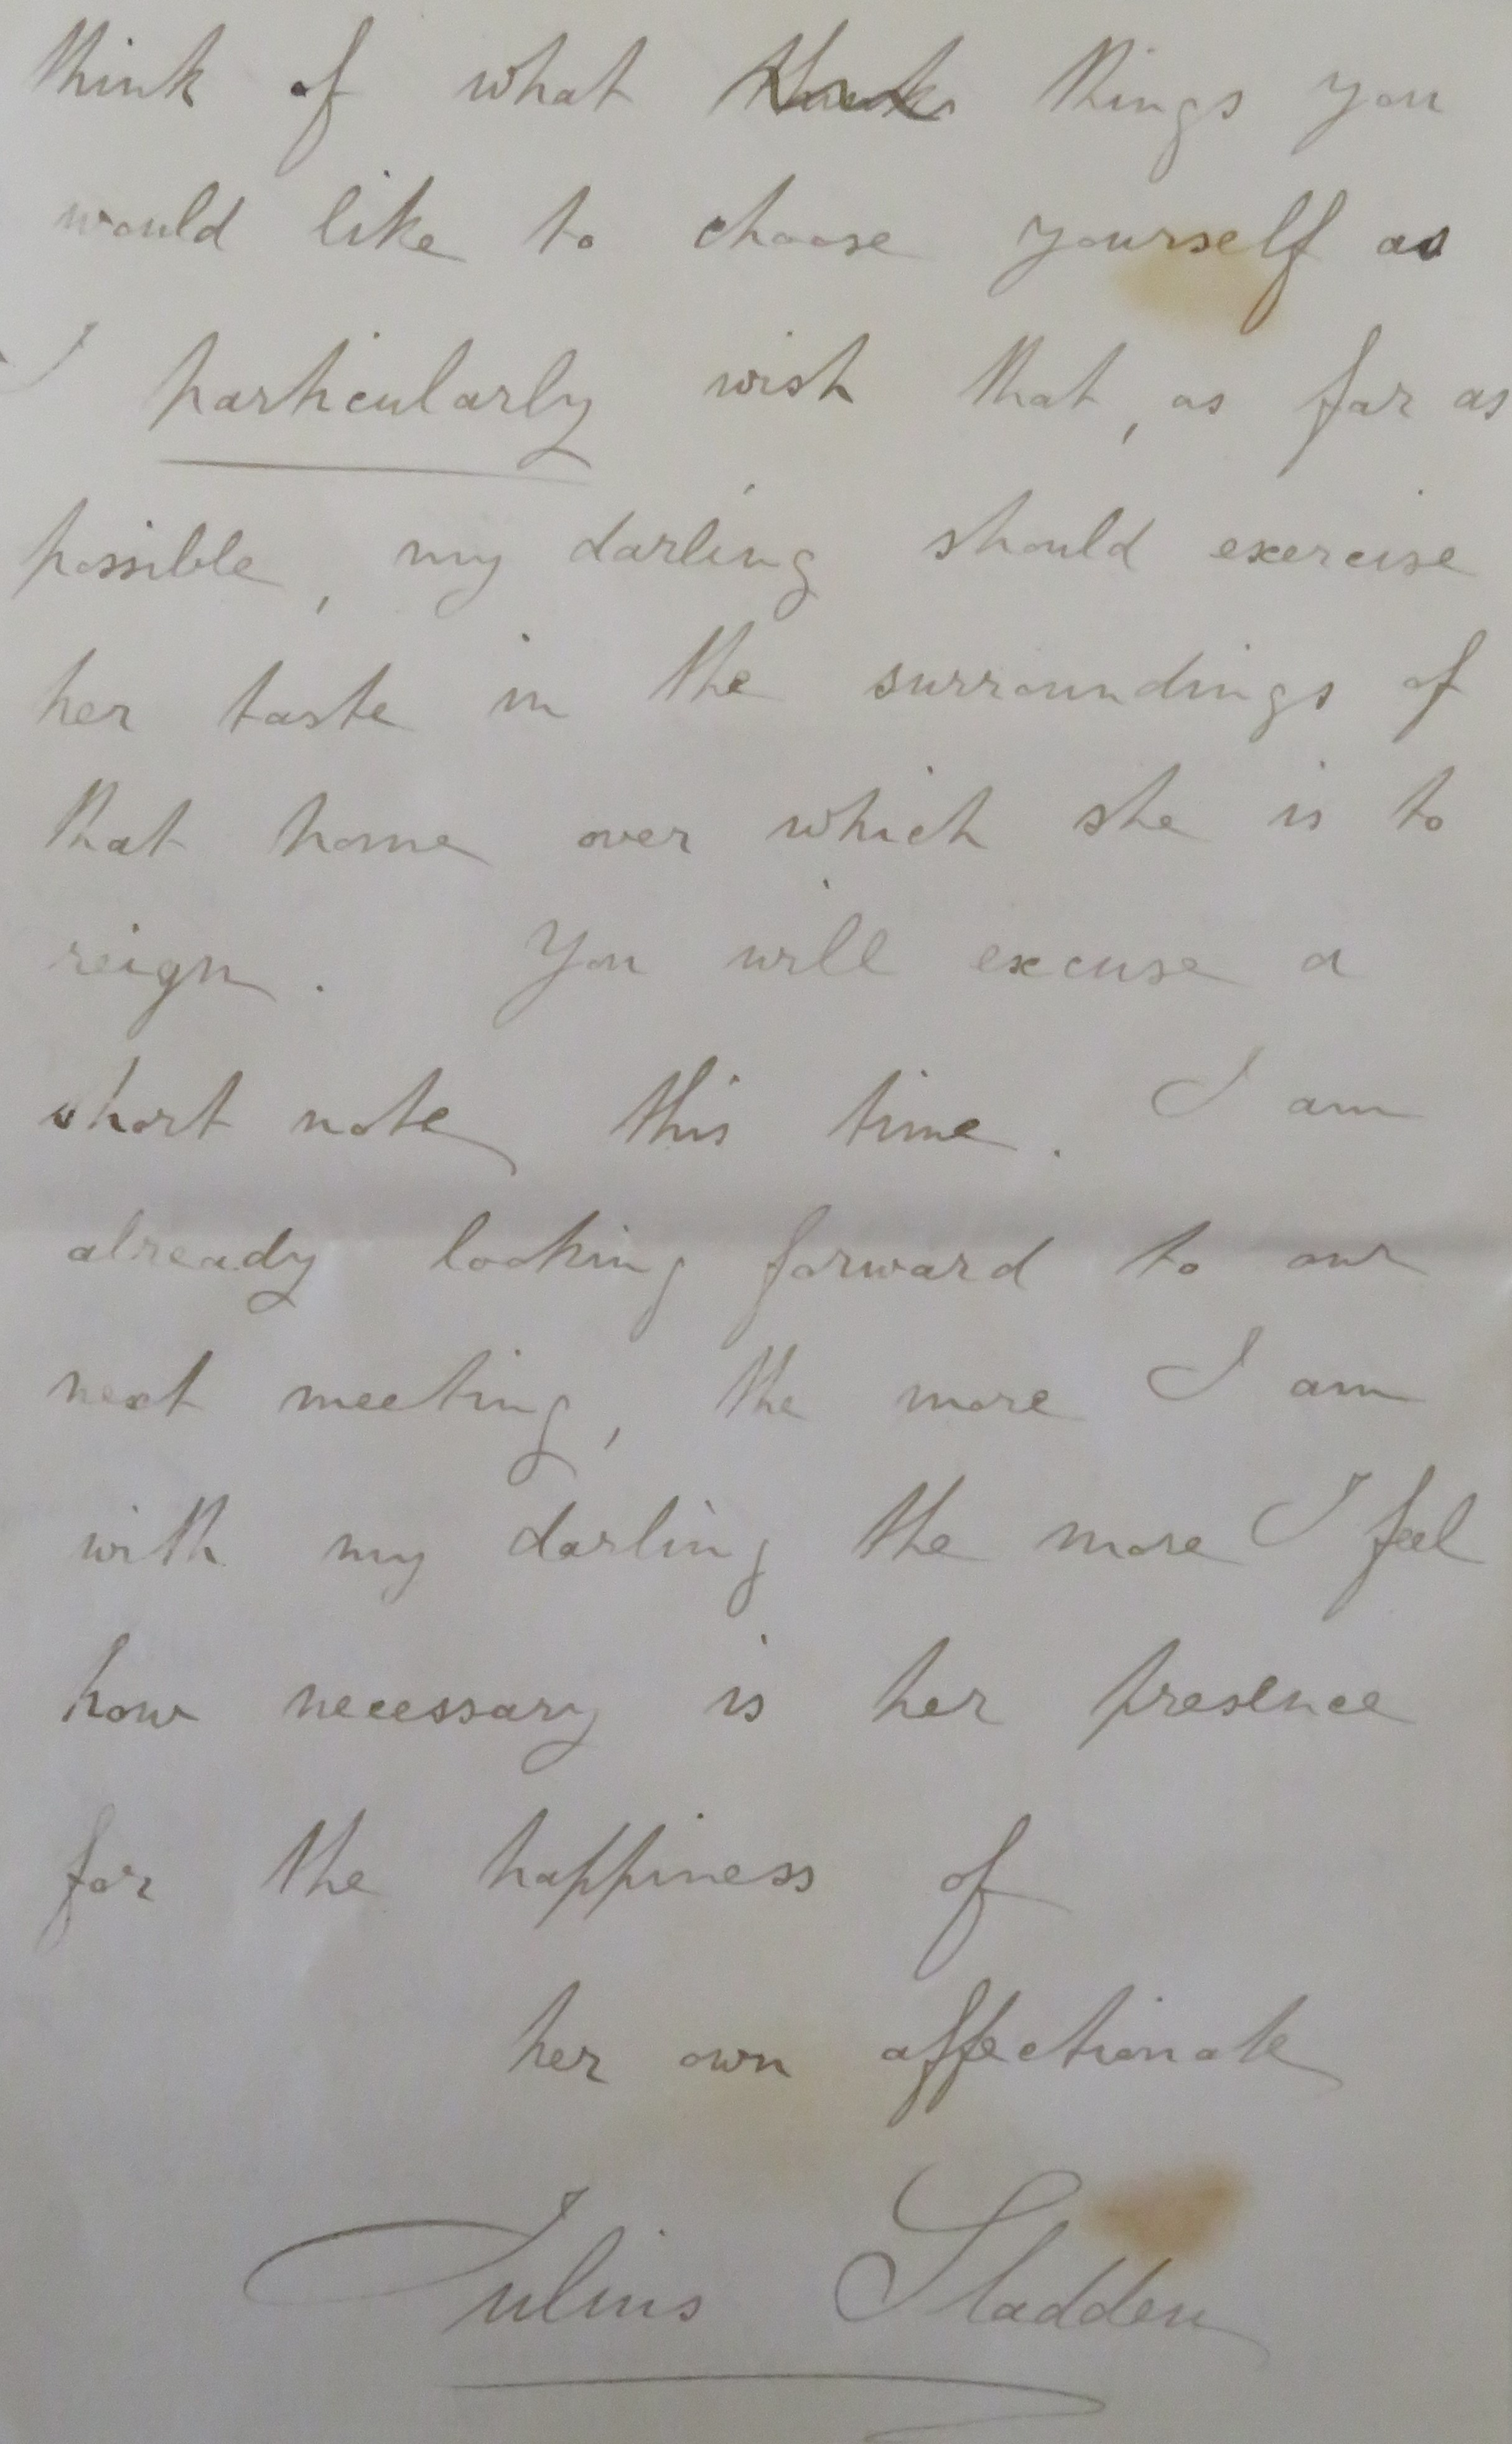 think of what things you
would like to choose yourself as
I particularly wish that, as far as
possible, my darling should exercise
her taste in the surroundings of
that home over which she is to
reign. You will excuse a
short note this time. I am
already looking forward to our
next meeting, the more I am
with my darling the more I feel
how necessary is her presence
for the happiness of
her own affectionate
Julius Sladden